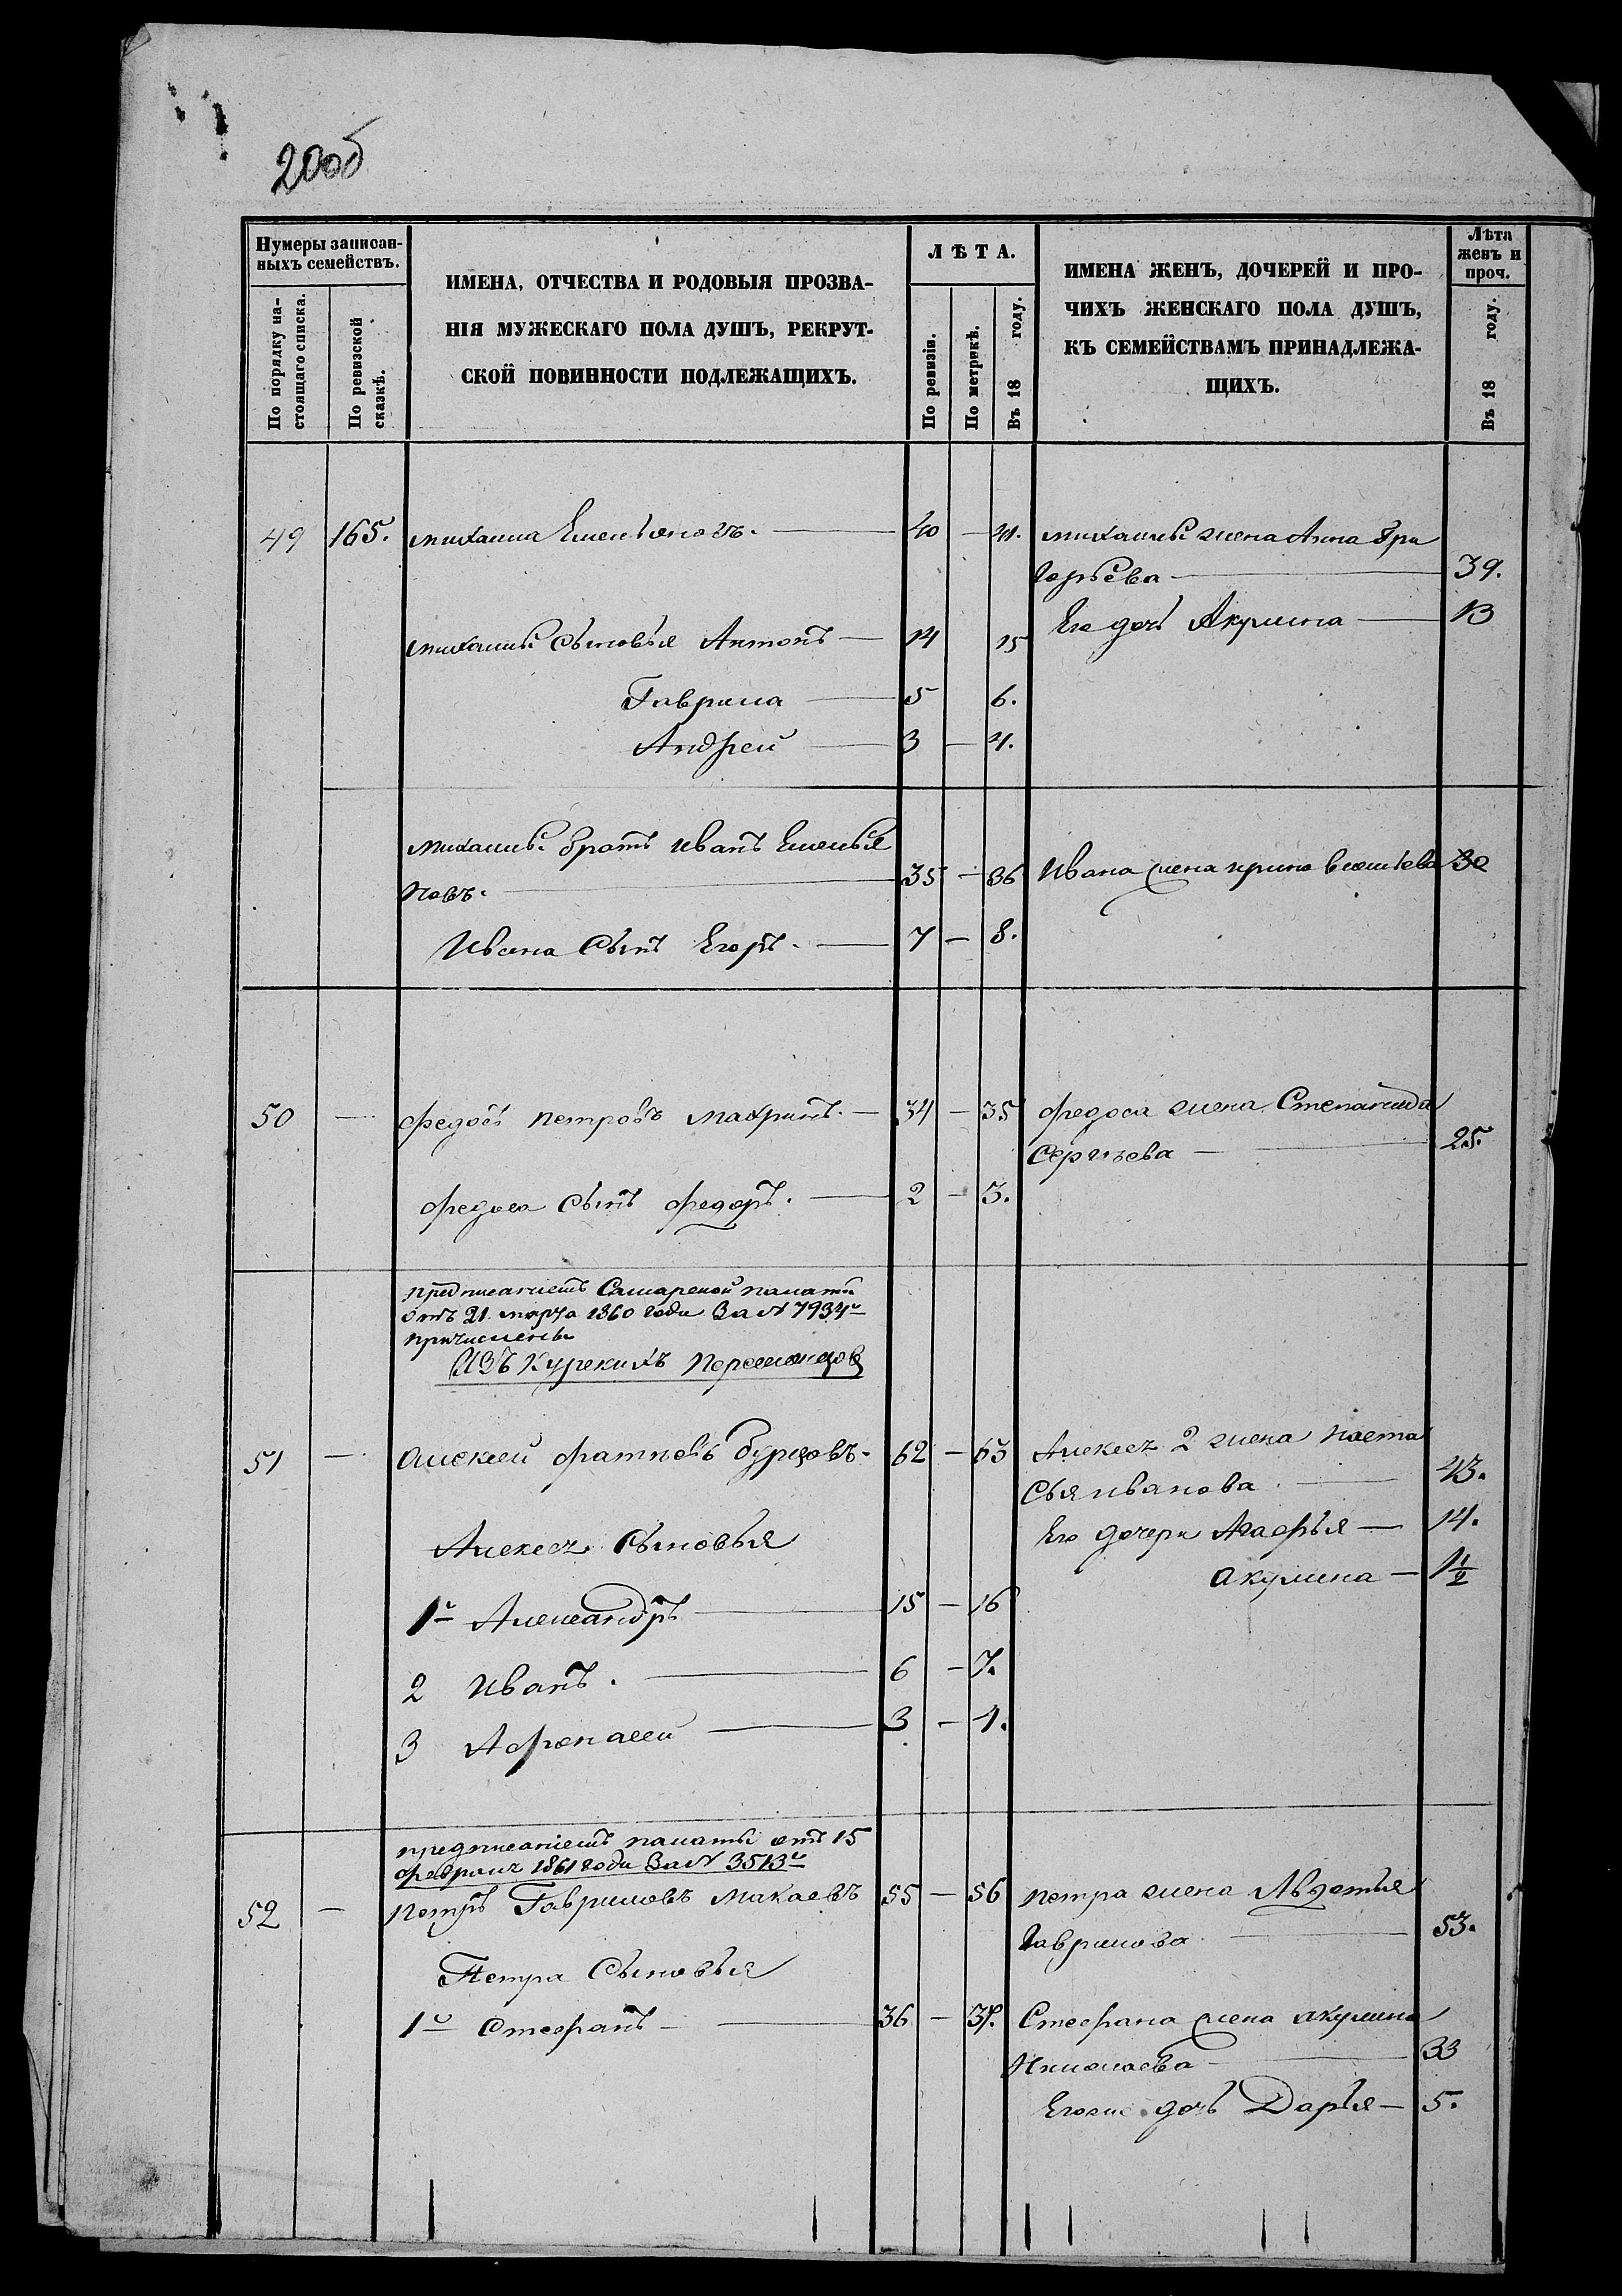 200об
Нумеры записан-
ныхъ семействъ.
По порядку на-
стоящаго списка.
По ревизской
сказкѣ.
ИМЕНА, ОТЧЕСТВА И РОДОВЫЯ ПРОЗВА-
НІЯ МУЖЕСКАГО ПОЛА ДУШЪ, РЕКРУТ-
СКОЙ ПОВИННОСТИ ПОДЛЕЖАЩИХЪ.
ЛѢТА.
По ревизіи.
По метрикѣ.
Въ 18 году.
ИМЕНА ЖЕНЪ, ДОЧЕРЕЙ И ПРО-
ЧИХЪ ЖЕНСКАГО ПОЛА ДУШЪ,
КЪ СЕМЕЙСТВАМЪ ПРИНАДЛЕЖА-
ЩИХЪ.
Лѣта
женъ и
проч.
Въ 18 году.
49 165. Михаила Емельяновъ. — 40 — 41. Михаилы жена Анна Гри
горьева — 39.
Его дочь Акулина — 13
Михаилы сыновья Антонъ — 14 15
Гаврила — 5 6.
Андрей — 3 — 4.
Михаилы братъ Иванъ Емелья
новъ. — 35 — 36 Ивана жена Ирина 30
Ивана сынъ Егоръ. — 7 — 8.
50 — Федосъ Петровъ Махринъ. — 34 — 35 Федоса жена Степанида
Сергѣева — 25.
Федоса сынъ Федоръ. — 2 — 3.
предписаніемъ Самарской палаты
отъ 21 марта 1860 года За № 7934й
причислены
Изъ Курскихъ Переселенцовъ
51 — Алексей Фатѣевъ Бурцовъ. 62 — 63 Алексея 2 жена Наста
сья Иванова — 43.
Его дочери Агафья — 14.
Акулина — 1 1/2
Алексея Сыновья
1й Александръ — 15 — 16
2 Иванъ. — 6 — 7.
3 Афонасей — 3 — 4.
предписаніемъ палаты отъ 15
февраля 1861 года За № 3513й
52 — Петръ Гавриловъ Макаевъ 55 — 56 Петра жена Авдотья
Гаврилова — 53.
Петра Сыновья
1й Стефанъ — 36 — 37. Стефана жена Акулина
Николаева — 33
Егоже дочь Дарья — 5.